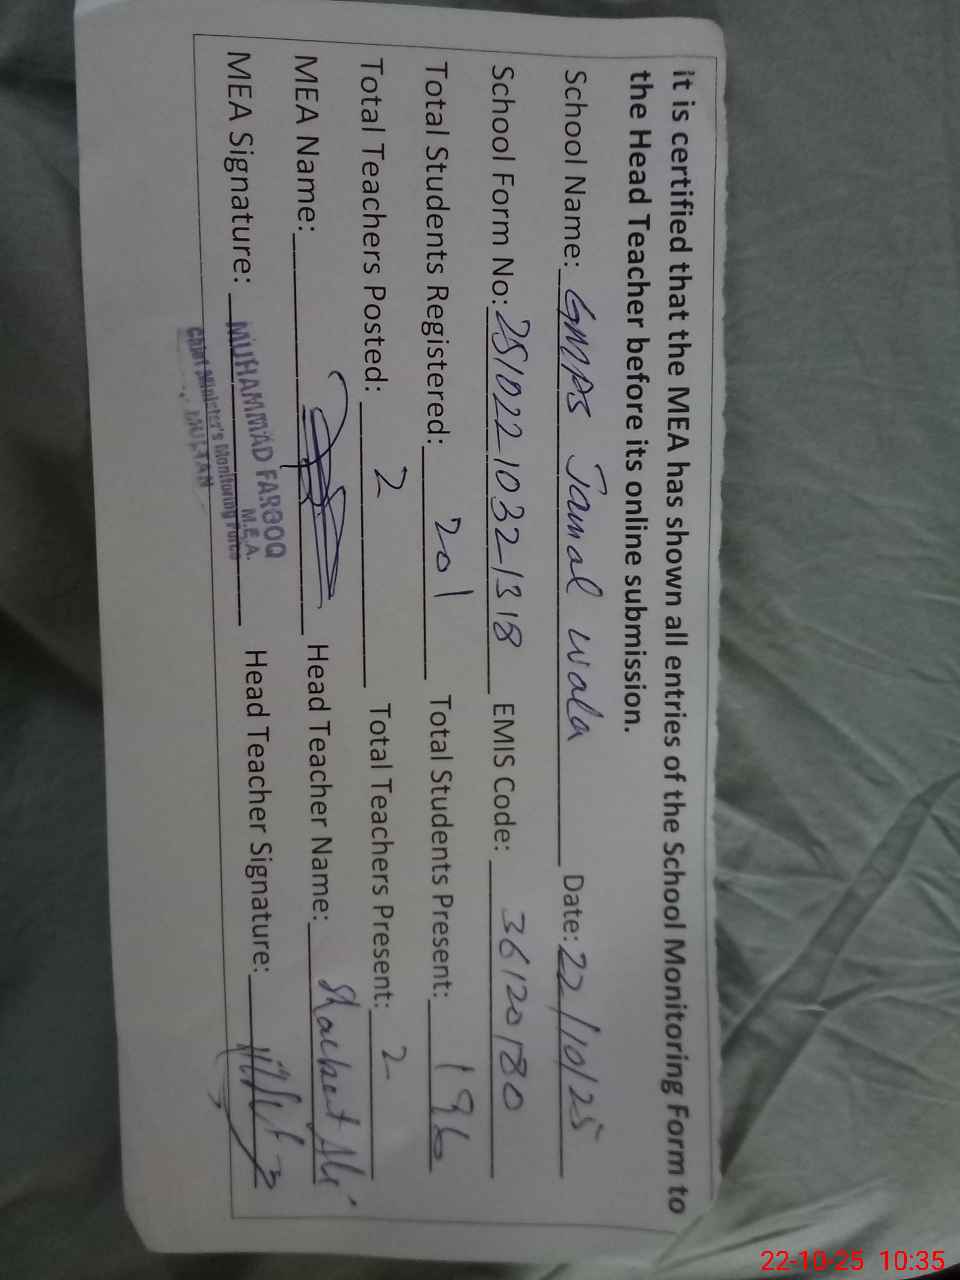 it is certified that the MEA has shown all entries of the School Monitoring Form to
the Head Teacher before its online submission.
School Name: GMPS Jamal wala Date: 22/10/25
School Form No: 25102210321318 EMIS Code: 36120180
Total Students Registered: 201 Total Students Present: 196
Total Teachers Posted: 2 Total Teachers Present: 2
MEA Name: Head Teacher Name: Shaukat Ali
MEA Signature: Head Teacher Signature:
MUHAMMAD FAROOQ
M.E.A.
Chief Minister's Monitoring Force
MULTAN
22-10-25 10:35